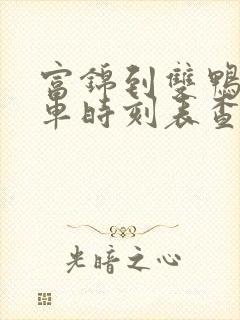 富錦到雙鴨
車時刻表查
光暗之心